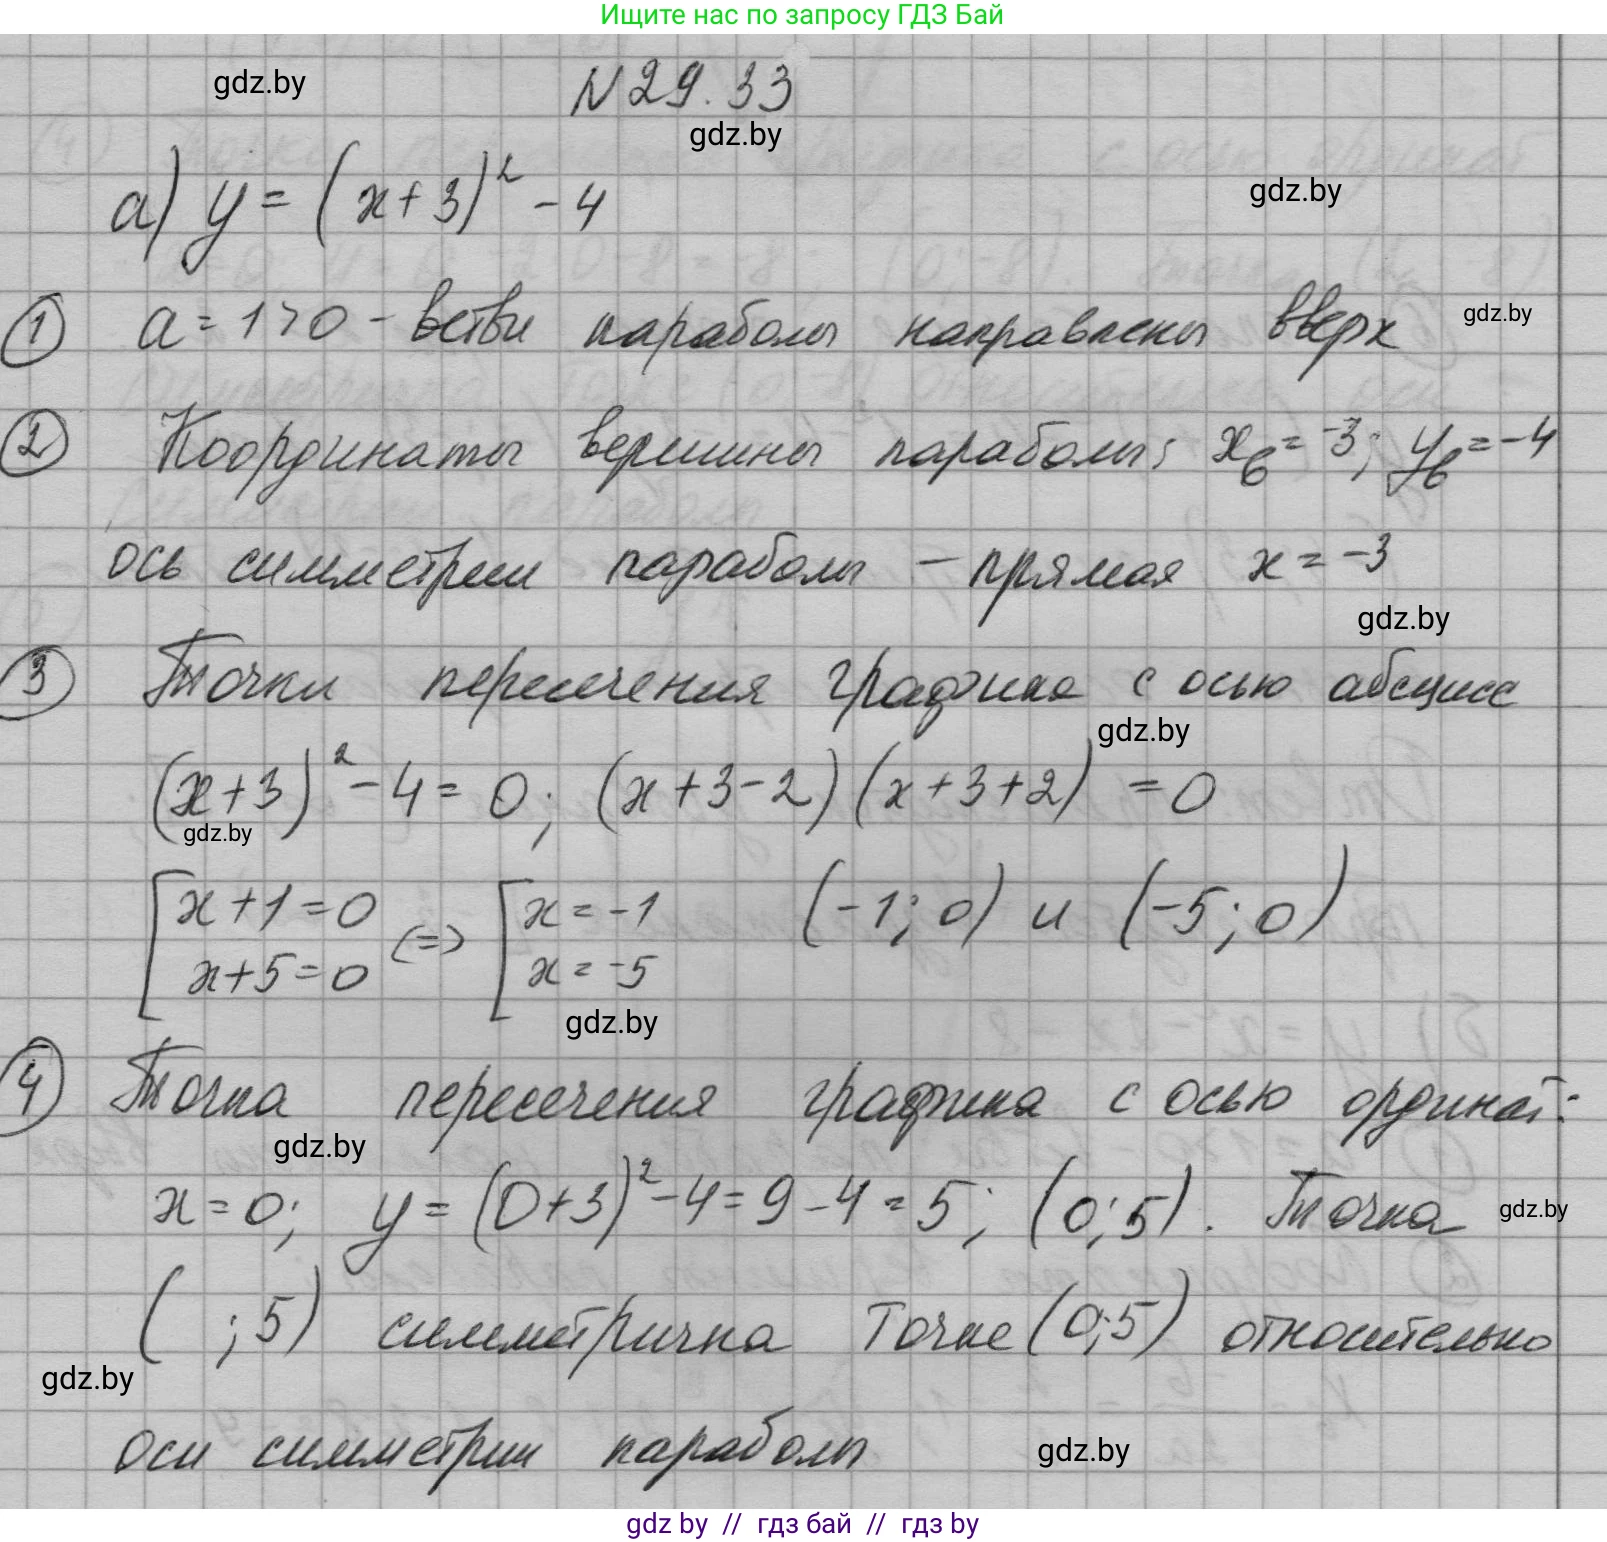 Ищите нас по запросу ГДЗ Бай
gdz.by
N 29.33
gdz.by
а) y = (x+3)² - 4
gdz.by
① a = 1 > 0 - ветви параболы направлены вверх
gdz.by
② Координаты вершины параболы: xв = -3; yв = -4
ось симметрии параболы - прямая x = -3
gdz.by
③ Точки пересечения графика с осью абсцисс
gdz.by
(x+3)² - 4 = 0; (x+3-2)(x+3+2) = 0
gdz.by
[x+1=0 <=> [x=-1 (-1; 0) и (-5; 0)
x+5=0 x=-5
gdz.by
④ Точка пересечения графика с осью ординат:
gdz.by
x = 0; y = (0+3)² - 4 = 9 - 4 = 5; (0; 5). Точка
gdz.by
( ; 5) симметрична точке (0; 5) относительно
gdz.by
оси симметрии параболы
gdz.by
gdz by // гдз бай // гдз by